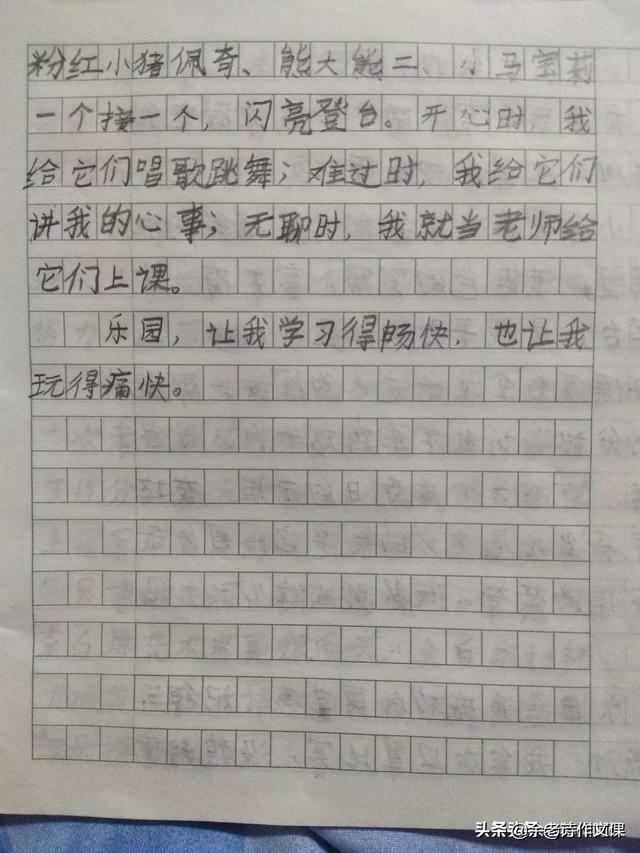 粉红小猪佩奇、熊大熊二、小马宝莉
一个接一个，闪亮登台。开心时，我
给它们唱歌跳舞；难过时，我给它们
讲我的心事；无聊时，我就当老师给
它们上课。
乐园，让我学习得畅快，也让我
玩得痛快。